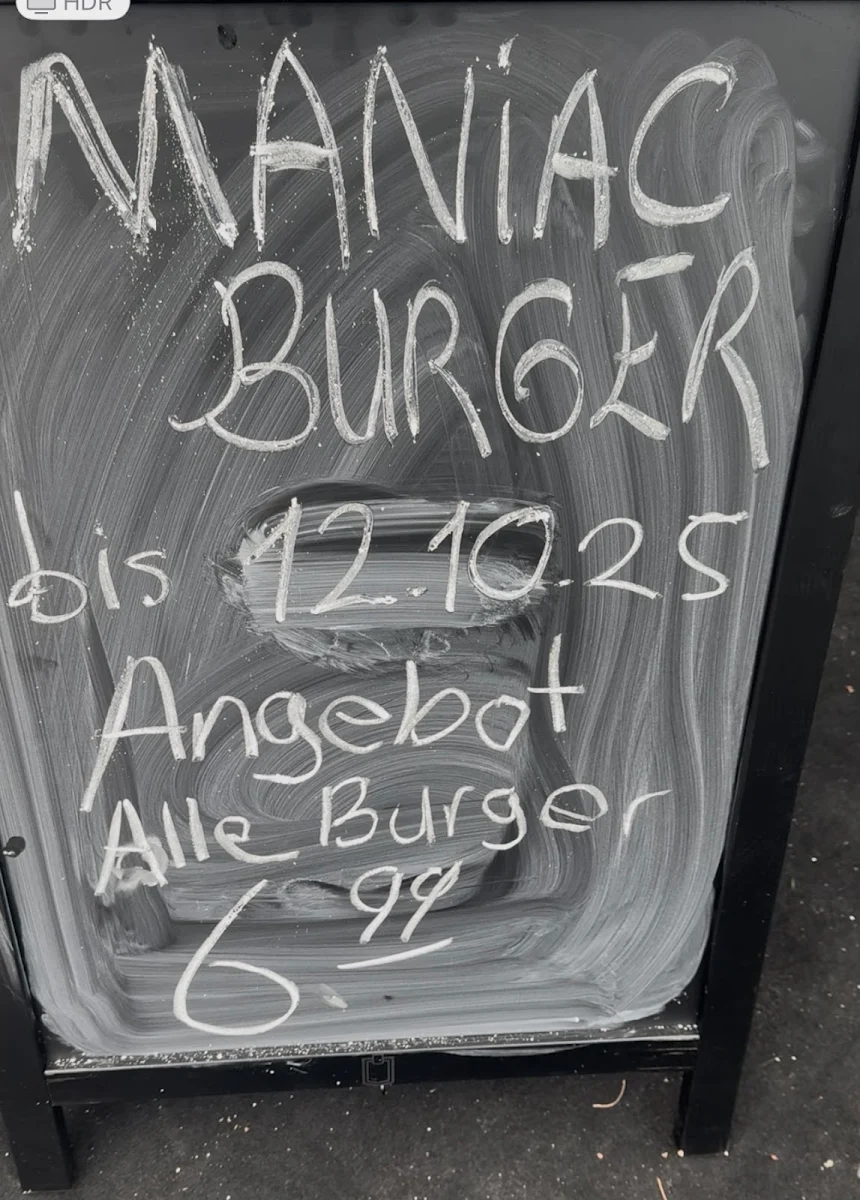 HDR
MANiAC
BURGER
bis 12.10.25
Angebot
Alle Burger
6.99